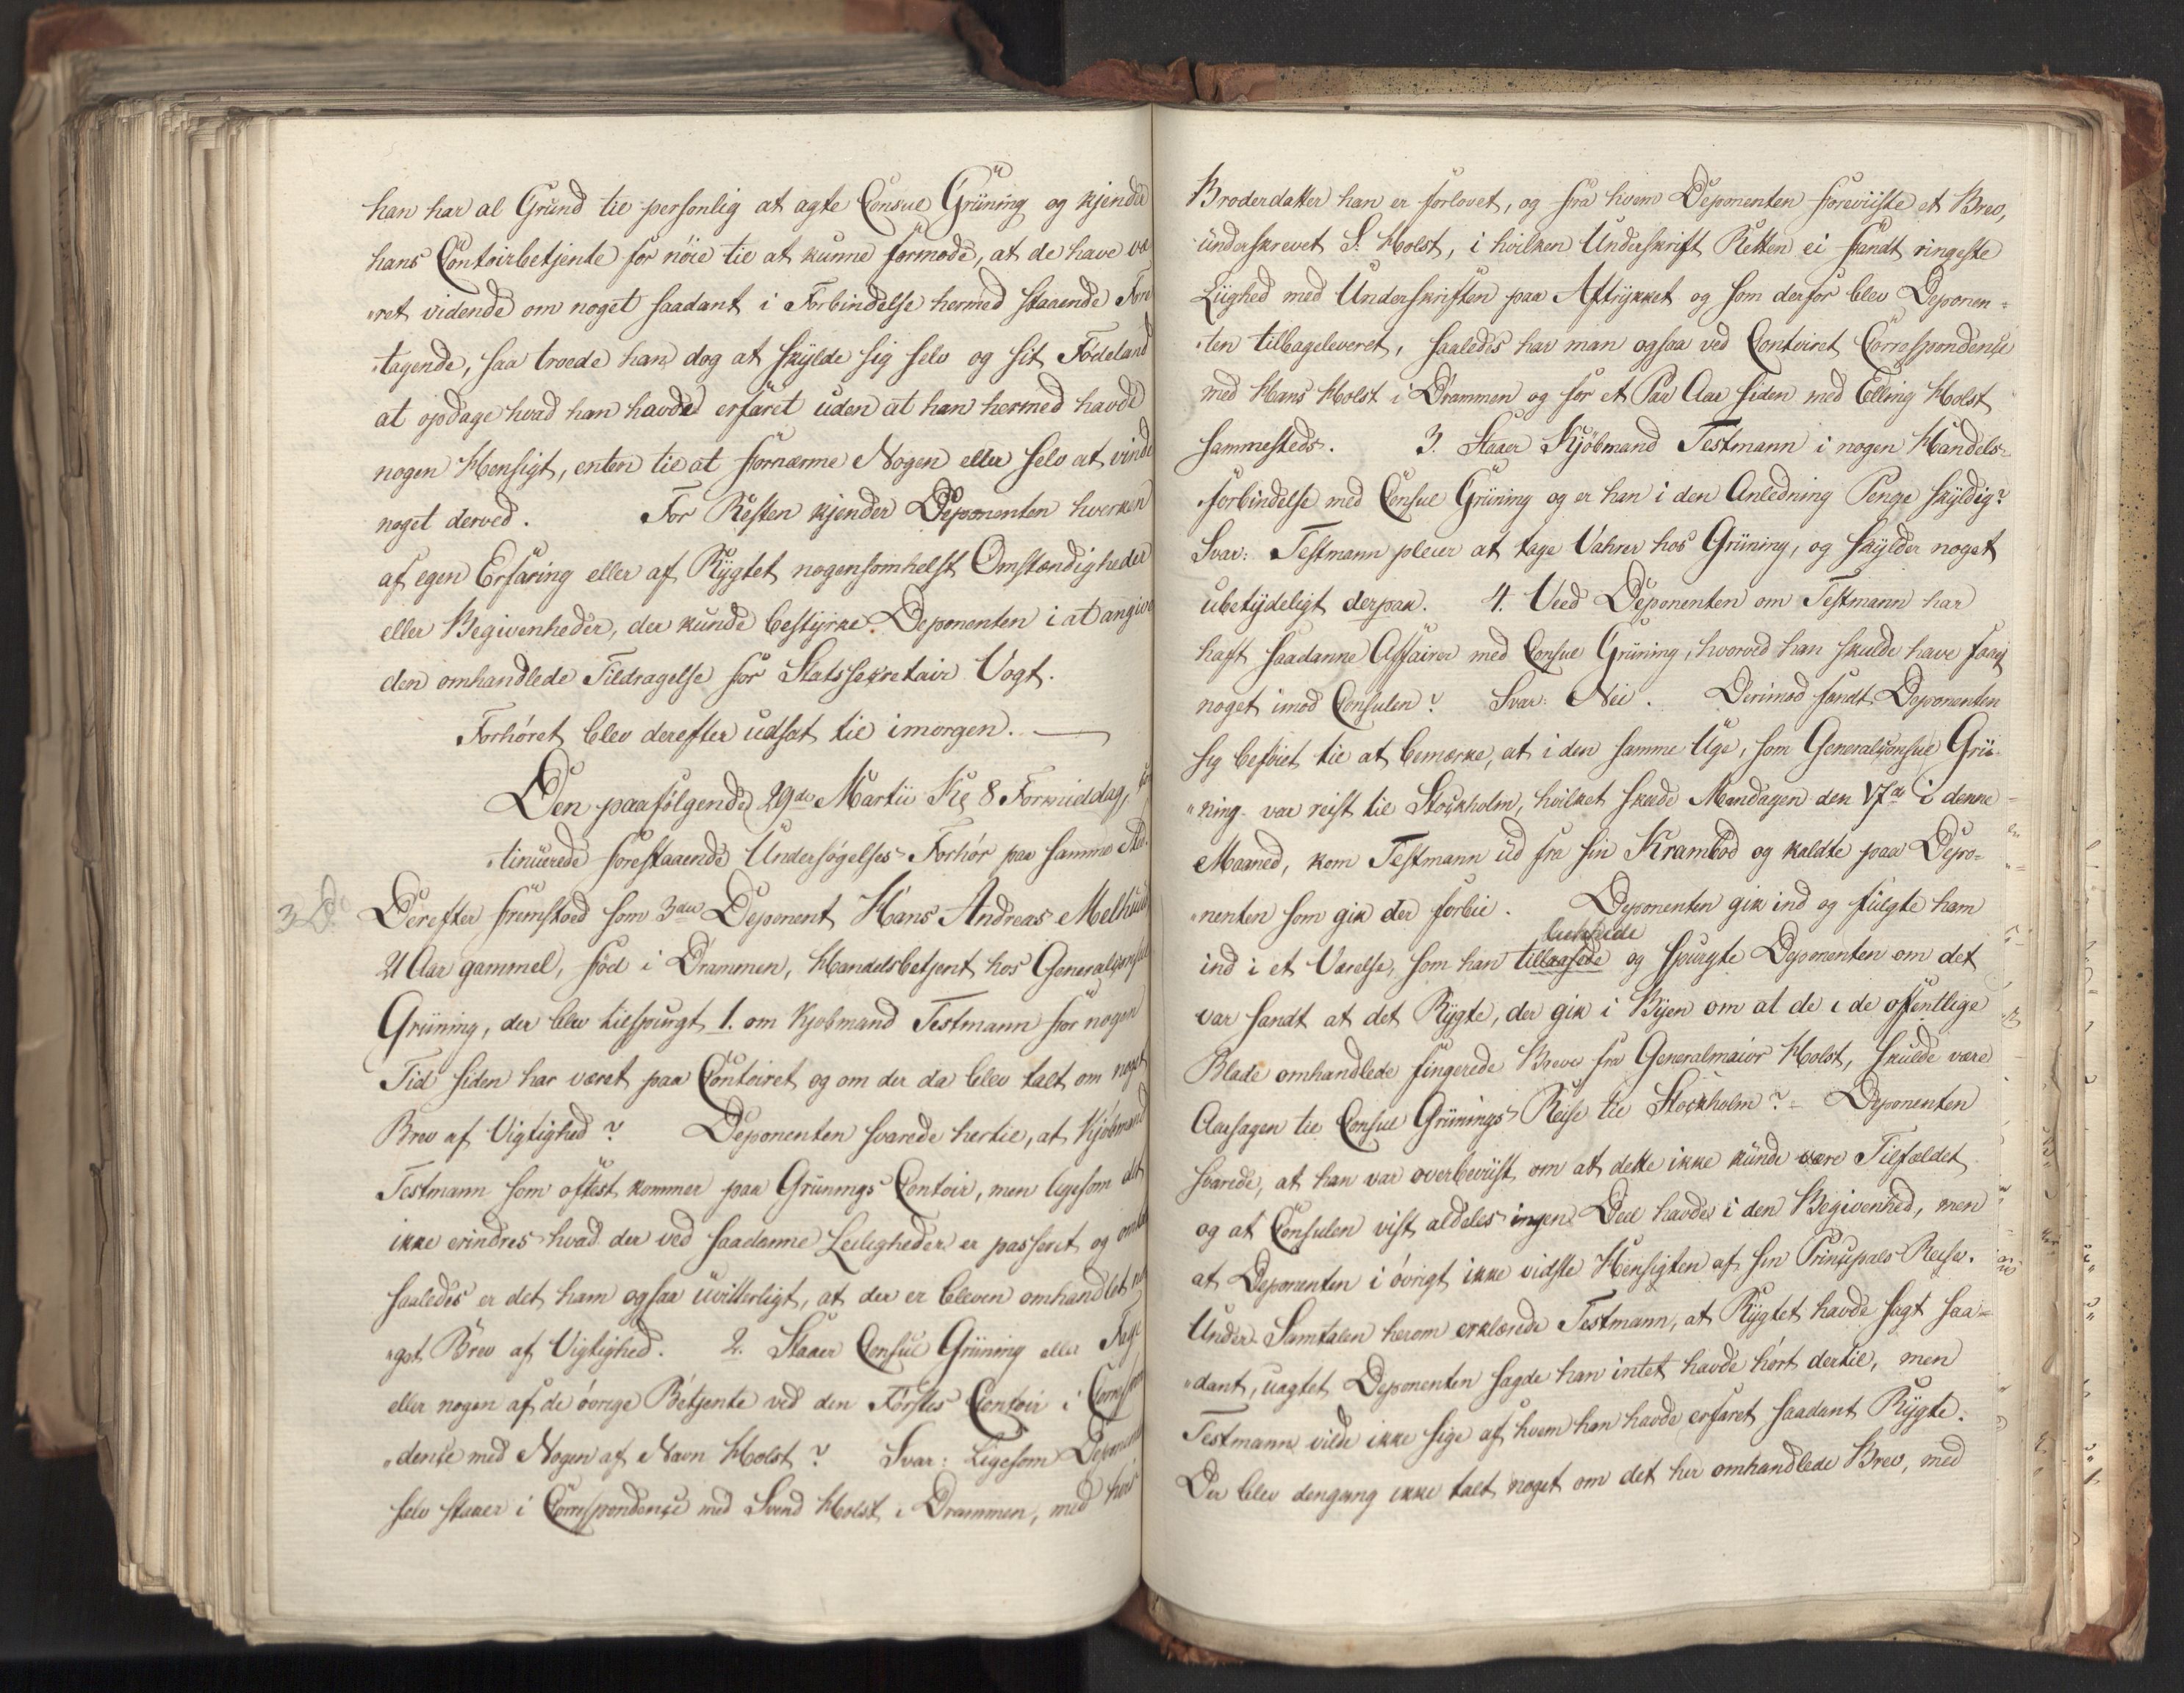 han har al Grund til personlig at agte Consul Grüning og kjender
hans Contoirbetjente for nöie til at kunne formode, at de have væ
„ret vidende om noget saadant i Forbindelse hermed staaende Fore
„tagende, saa troede han dog at skylde sig selv og sit Födeland
at opdage hvad han havde erfaret uden at han hermed havde
nogen Hensigt, enten til at fornærme Nogen eller selv at vinde
noget derved. For Resten kjender Deponenten hverken
af egen Erfaring eller af Rygtet nogensomhelst Omstændigheder
eller Begivenheder, der kunde bestyrke Deponenten i at angive
den omhandlede Tildragelse for Statssekretair Vogt.
Forhöret blev derefter udsat til imorgen. —
Den paafölgende 29de Martii Kl 8 Formiddag,
„tinuerede forestaaende Undersögelses-Forhör paa samme Sted.
3 D.
Derefter fremstoed som 3die Deponent Hans Andreas Melhuus
21 Aar gammel, föd i Drammen, Handelsbetjent hos Generalconsul
Grüning, der blev tilspurgt 1. om Kjöbmand Testmann for nogen
Tid siden har været paa Contoiret og om der da blev talt om noget
Brev af Vigtighed? Deponenten svarede hertil, at Kjöbmand
Testmann som oftest kommer paa Grünings Contoir, men ligesom det
ikke erindres hvad der ved saadanne Leiligheder er passeret og omtalt
saaledes er det ham ogsaa uvitterligt, at der er bleven omhandlet no
„get Brev af Vigtighed. 2. Staaer Consul Grüning eller
eller nogen af de övrige Betjente ved den Förstes Contoir i Correspon
„dence med Nogen af Navn Holst? Svar: Ligesom Deponenten
selv staaer i Correspondence med Svend Holst i Drammen, med hvis
Broderdatter han er forlovet, og fra hvem Deponenten foreviiste et Brev,
underskrevet S. Holst, i hvilken Underskrift Retten ei fandt ringeste
Liighed med Underskriften paa Aftrykket og som derfor blev Deponen=
„ten tilbageleveret, saaledes har man ogsaa ved Contoiret Correspondence
med Hans Holst i Drammen og for et Par Aar siden med Elling Holst
sammesteds. 3. Staaer Kjöbmand Testmann i nogen Handels=
forbindelse med Consul Grüning og er han i den Anledning Penge skyldig?
Svar: Testmann pleier at tage Vahrer hos Grüning, og skylder noget
ubetydeligt derpaa. 4. Veed Deponenten om Testmann har
haft saadanne Affairer med Consul Grüning, hvorved han skulde have faaet
noget imod Consulen? Svar: Nei. Derimod fandt Deponenten
sig beföiet til at bemærke, at i den samme Uge, som Generalconsul Grü=
„ning var reist til Stockholm, hvilket skede Mandagen den 17de i denne
Maaned, kom Testmann ud fra sin Krambod og kaldte paa Depo=
„nenten som gik der forbie. Deponenten gik ind og fulgte ham
lukkede
ind i et Værelse, som han tillaasede og spurgte Deponenten om det
var sandt at det Rygte, der gik i Byen om at de i de offentlige
Blade omhandlede fingerede Breve fra Generalmaior Holst, skulde være
Aarsagen til Consul Grünings Reise til Stockholm? = Deponenten
svarede, at han var overbeviist om at dette ikke kunde være Tilfældet
og at Consulen vist aldeles ingen Deel havde i den Begivenhed, men
at Deponenten i övrigt ikke vidste Hensigten af sin Principals Reise.
Under Samtalen herom erklærede Testmann, at Rygtet havde sagt saa=
„dant, uagtet Deponenten sagde han intet havde hört dertil, men
Testmann vilde ikke sige af hvem han havde erfaret saadant Rygte.
Der blev dengang ikke talt noget om det her omhandlede Brev, med